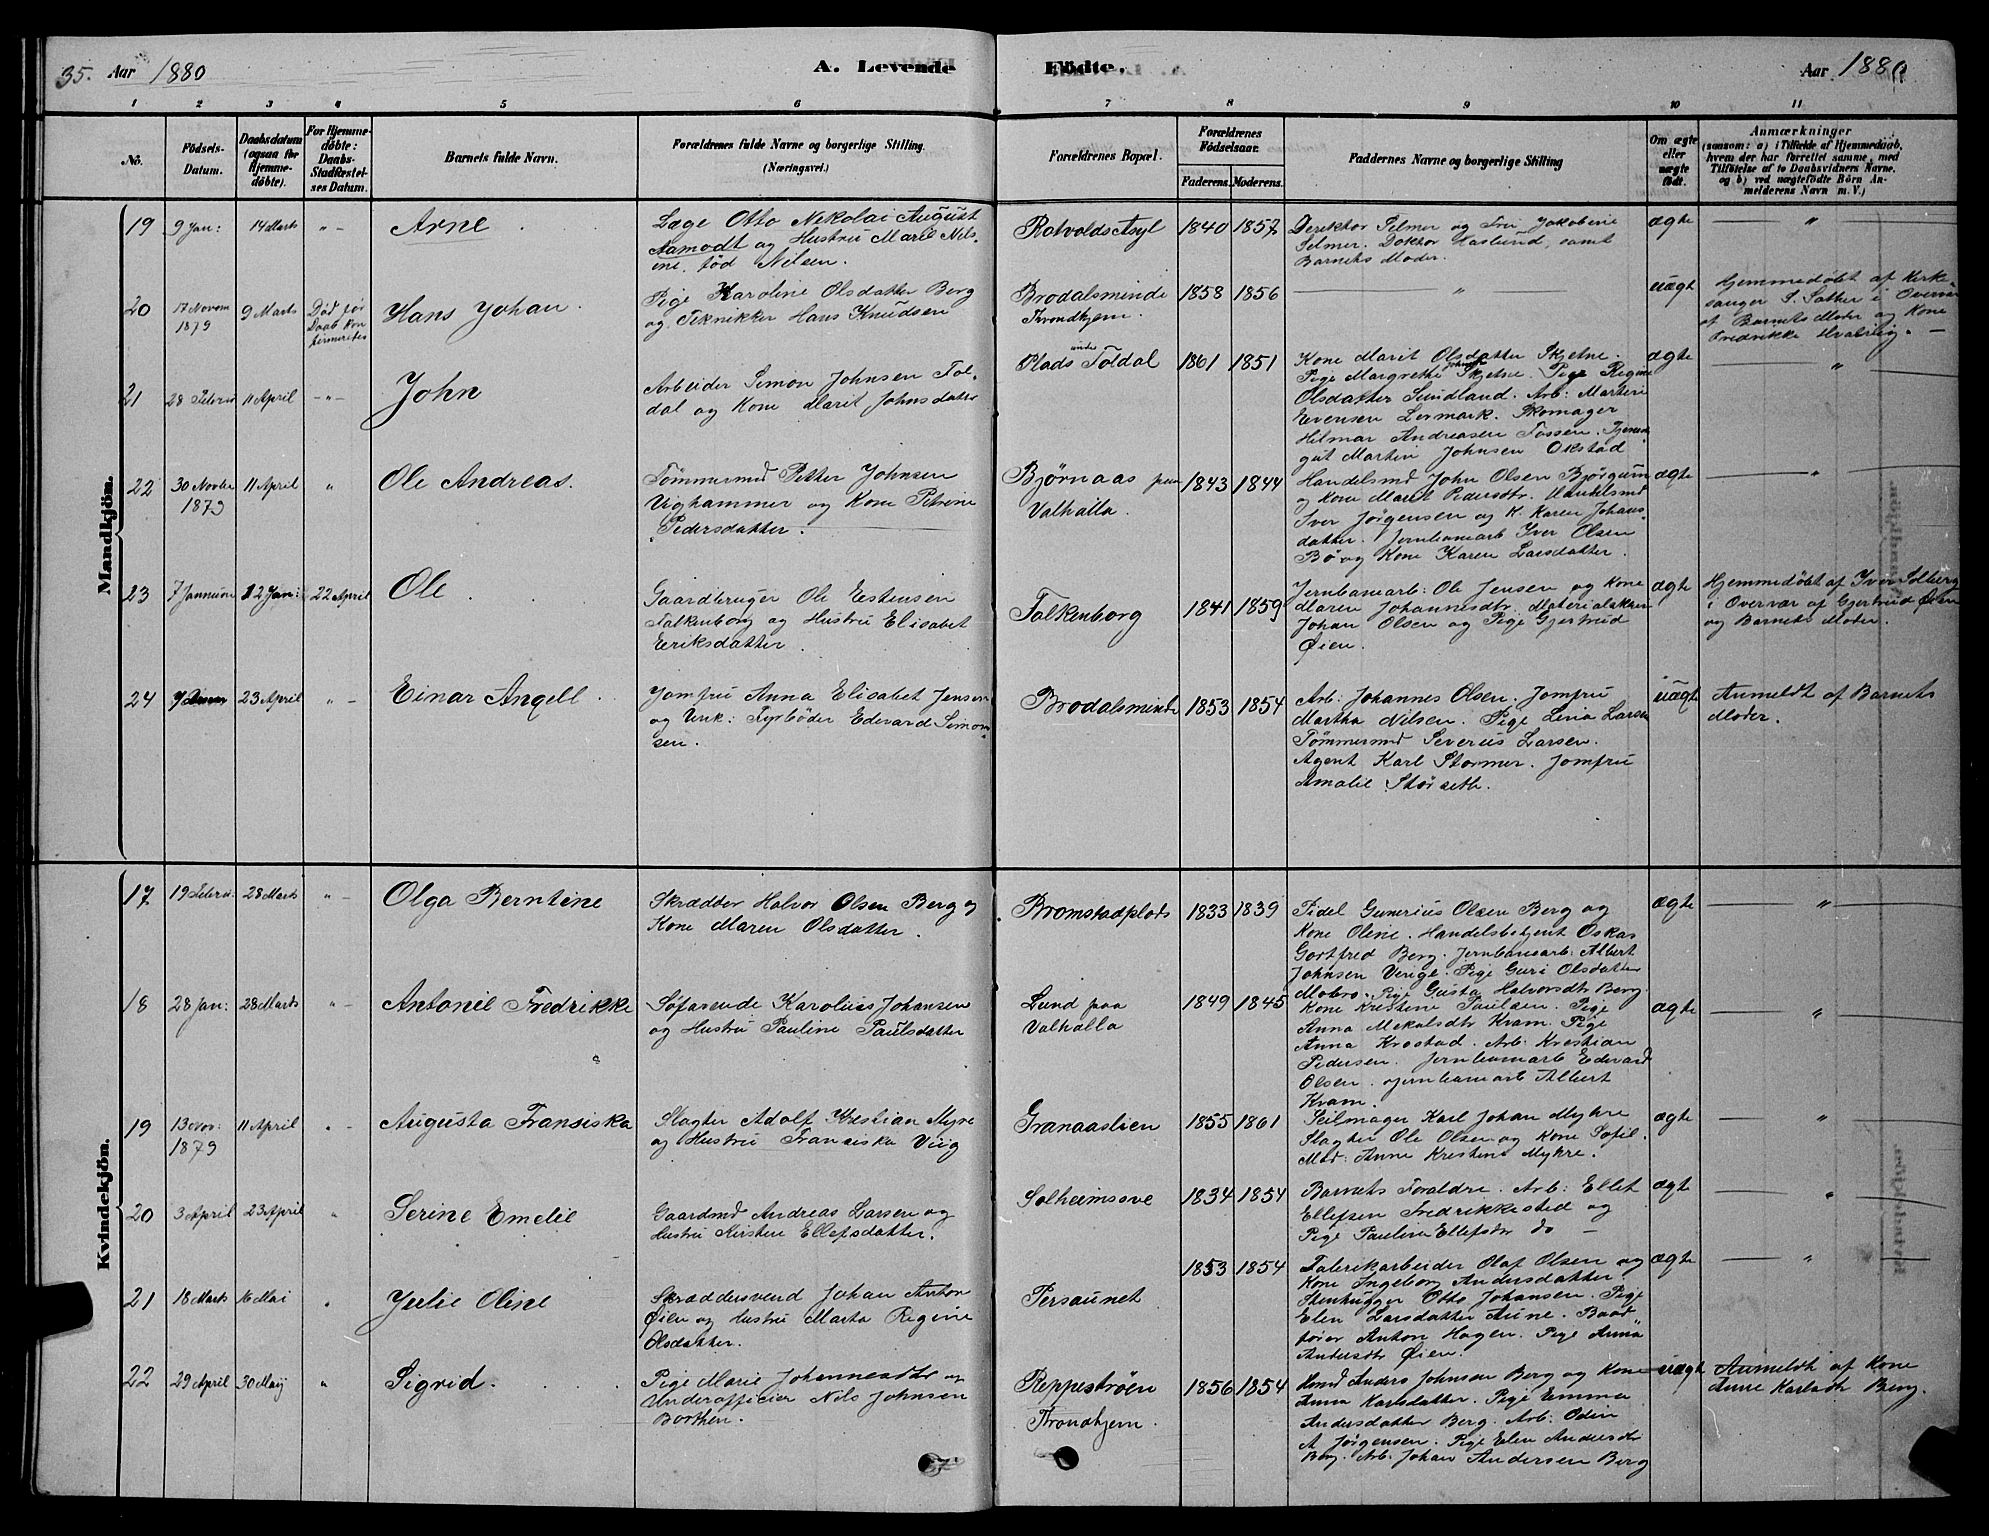 35. Aar 1880
A. Levende Födte.
Aar 1880
1 2 3 4 5 6 7 8 9 10 11
No.
Födsels-Datum.
Daabsdatum (ogsaa for Hjemme-döbte).
For Hjemme-döbte: Daabs-Stadfæstel-ses Datum.
Barnets fulde Navn.
Forældrenes fulde Navne og borgerlige Stilling. (Næringsvei.)
Forældrenes Bopæl.
Forældrenes Födselsaar.
Faderens. Moderens.
Faddernes Navne og borgerlige Stilling
Om ægte eller uægte födt.
Anmærkninger
(saasom: a) i Tilfælde af Hjemmedaab,
hvem der har forrettet samme, med
Tilföielse af to Daabsvidners Navne,
og b) ved uægtefödte Börn An-
melderens Navn m. V.)
Mandkjön.
19 9 Jan: 14 Marts " Arne
Læge Otto Nikolai August
Aamodt og Hustru Marie Nils-
ine, född Nilsen.
Rotvolds Asyl 1840 1857
Direktør Selmer og Fru Jakobine
Selmer. Doktor Haslund, samt
Barnets Moder.
ægte "
20 17 Novem 1879 9 Marts Død før Daab kon Hans Johan
Pige Karoline Olsdatter Berg
og Teknikker Hans Knudsen
Brodalsminde
Throndhjem.
1858 1856 " uægte
Hjemmedöbt af Kirke-
sanger S. Sæther i Overvær
af Barnets Moder og Kone
Fredrikke Hvalrig. -
21 28 Febru 11 April " John
Arbeider Simon Johnsen Tol-
dal og Kone Marit Johnsdatter
Plads under Toldal 1861 1851
Kone Marit Olsdatter Skjetne.
Pige Margrethe Johnsd Skjetne. Pige Regine
Olsdatter Sundland. Arb: Martin
Evensen Lermark. Skomager
Hilmar Andreasen Fossen. Tjeneste
gut Martin Johnsen Okstad
ægte "
22 30 Novbr 1879 11 April " Ole Andreas.
Tømmermd Petter Johnsen
Vighammer og Kone Petrine
Pedersdatter.
Bjørnaas paa
Valhalla.
1843 1844
Handelsmd John Olsen Bjørgum
og Kone Marit Pedersdtr. Handelsmd
Iver Jørgensen og K. Karen Johans
datter. Jernbanearb Iver Olsen
Bø og Kone Karen Larsdatter.
ægte "
23 7 Januar 12 Jan: 22 April Ole
Gaardbruger Ole Estensen
Falkenborg og Hustru Elisabet
Eriksdatter.
Falkenborg 1841 1859
Jernbanearb: Ole Jensen og Kone
Maren Johannesdtr.
Johan Olsen og Pige Gjertrud
Øien.
ægte
Hjemmedöbt af Iver Solberg
i Overvær af Gjertrud Øien
og Barnets Moder.
24 23 April " Einar Angell.
Jomfru Anna Elisabet Jensen
og Unk: Fyrbøder Edevard Simon-
sen.
Brodalsminde 1853 1854
Arb: Johannes Olsen. Jomfru
Martha Nilsen. Pige Lina Larsen
Tømmermd Severus Larsen.
Agent Karl Stormer. Jomfru
Amalie Størseth.
uægte
Anmeldt af Barnets
Moder.
Kvindekjön.
17 19 Febru: 28 Marts " Olga Berntine
Skrædder Halvor Olsen Berg og
Kone Maren Olsdatter.
Bromstadplads 1833 1839
Fidel Gunerius Olsen Berg og
Kone Oline. Handelsbetjent Oskar
Gottfred Berg. Jernbanearb: Albert
Johnsen Venge. Pige Guri Olsdatter
Mobro. Pige Gusta Halvorsdtr Berg.
ægte "
18 28 Jan: 28 Marts " Antonie Fredrikke
Søfarende Karolius Johansen
og Hustru Pauline Paulsdatter
Lund paa
Valhalla
1849 1845
Kone Kristine Paulsen. Pige
Anna Mekalsdtr Kram. Pige
Anna Krostad. Arb. Krestian
Pedersen. Jernbanearb Edevard
Olsen. Jernbanearb Albert
Kram.
ægte "
19 13 Nov: 1879 11 April " Augusta Fransiska
Slagter Adolf Kristian Myre
og Hustru Franciska Viig
Granaaslien 1855 1861
Seilmager Karl Johan Myhre
Slagter Ole Olsen og Kone Sofie.
Mad: Anne Kristine Myhre.
ægte "
20 3 April 23 April " Serine Emelie
Gaardmd Andreas Larsen og
Hustru Kirsten Ellefsdatter.
Solheimsove 1834 1854
Barnets Foraldre. Arb: Ellef
Ellefsen Fredrikkested og
Pige Pauline Ellefsdtr do -
ægte "
21 18 Marts 16 Mai " Julie Oline
Skræddersvend Johan Anton
Øien og Hustru Marta Regine
Olsdatter.
Persaunet 1853 1854
Fabrikarbeider Olaf Olsen og
Kone Ingeborg Andersdatter
Stenhugger Otto Johansen. Pige
Elen Larsdatter Aune. Baad-
fører Anton Hagen. Pige Anna
Andersdtr Øien.
ægte "
22 29 April 30 Maij " Sigrid.
Pige Marie Johannesdtr og
Underofficier Nils Johnsen
Borthen.
Reppestrøen
Throndhjem.
1856 1854
Hmd Anders Johnsen Berg og Kone
Anna Karlsdatter. Pige Emma
Andersdatter Berg. Arb: Odin
A. Jørgensen. Pige Elen Andersdtr
Berg. Arb: Johan Andersen Berg
uægte
Anmeldt af Kone
Anne Karlsdtr Berg.